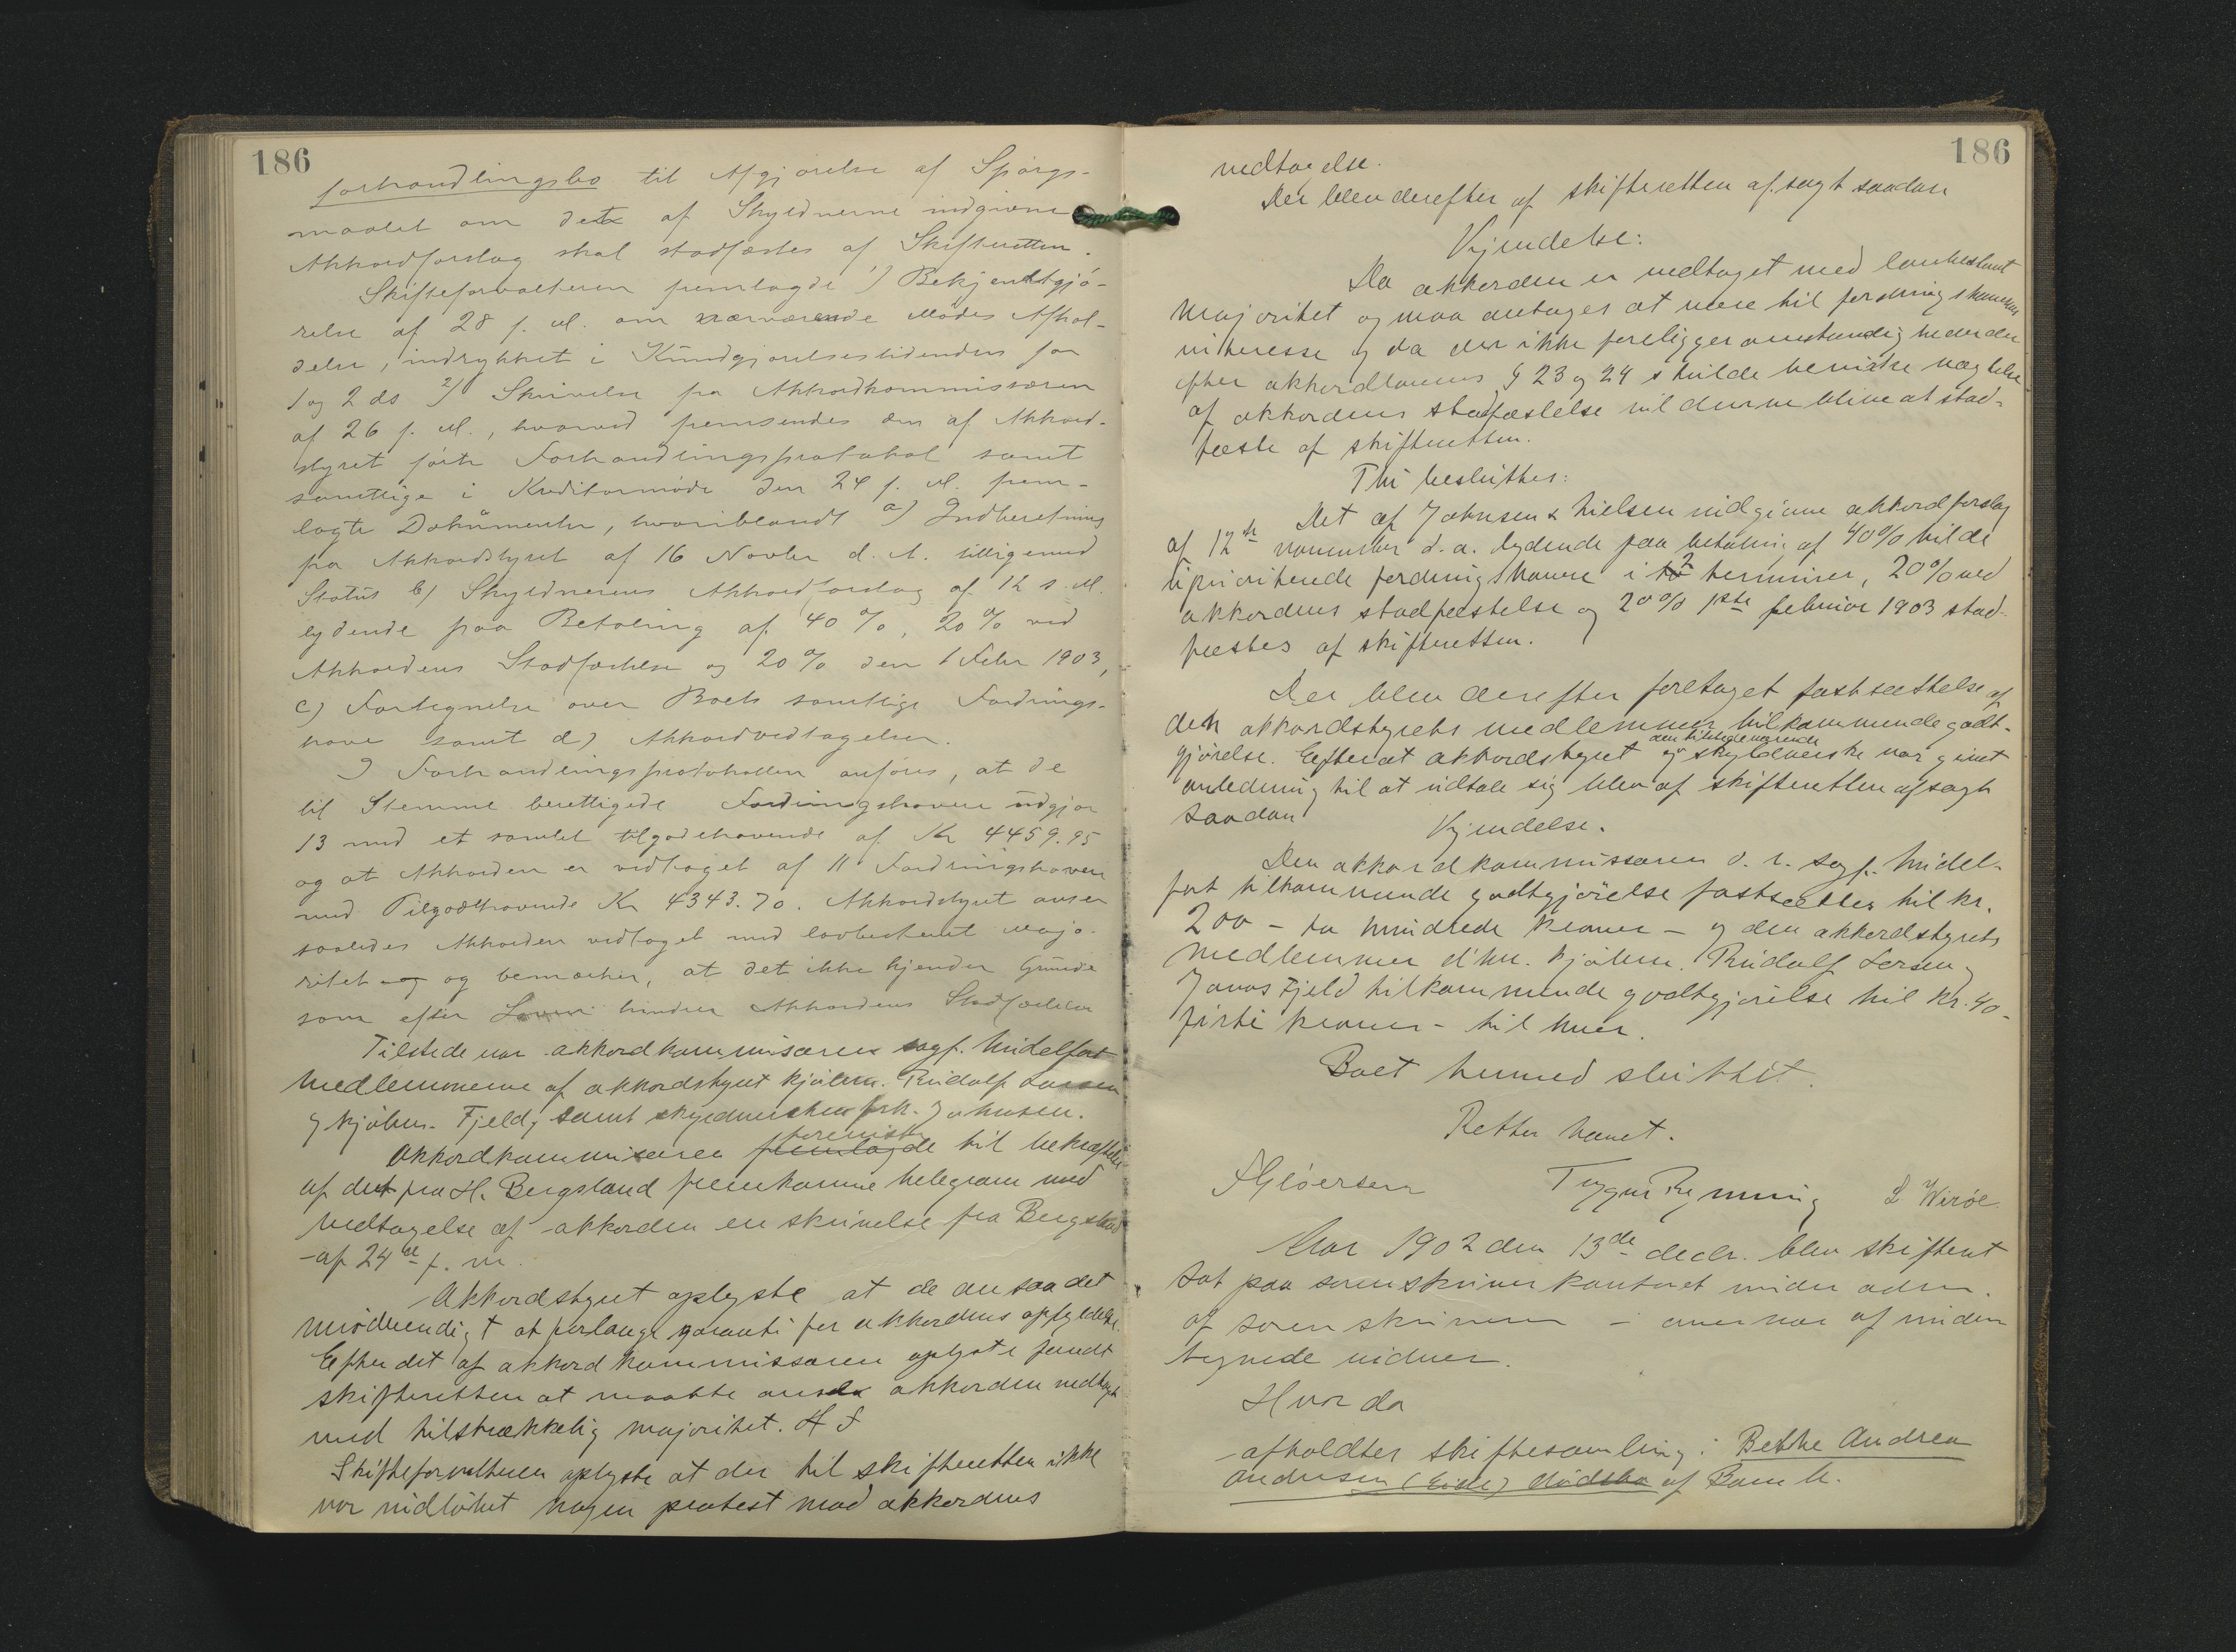 186
forhandlingsbo til Afgjørelse af Spørgs-
maalet om dette af Skyldnerne indgivne
Akkordforslag skal stadfæstes af Skifteretten.
Skifteforvalteren fremlagde 1) Bekjendtgjø-
relse af 28 f. M. om nærværende Mødes Afhol-
delse, indrykket i Kundgjørelsestidenden for
1 og 2 ds 2) Skrivelse fra Akkordkommissæren
af 26 f. M., hvorved fremsendes den af Akkord-
styret førte Forhandlingsprotokol samt
samtlige i Kreditormøde den 24 f. M. frem-
lagte Dokumenter, hvoriblandt a) Indberetning
fra Akkordstyret af 16 Novbr d. A. tilligemed
Status b) Skyldnernes Akkordforslag af 12 s. M.
lydende paa Betaling af 40 %, 20 % ved
Akkordens Stadfæstelse og 20 % den 1 Febr 1903,
c) Fortegnelse over Boets samtlige Fordrings-
havere samt d) Akkordvedtagelsen.
I Forhandlingsprotokollen anføres, at de
til Stemme berettigede Fordringshavere udgjør
13 med et samlet tilgodehavende af Kr 4459.95
og at Akkorden er vedtaget af 11 Fordringshavere
med Tilgodehavende Kr 4343.70. Akkordstyret anser
saaledes Akkorden vedtaget med lovbestemt Majo-
ritet og og bemærker, at det ikke kjender Grunde
som efter Loven hindrer Akkordens Stadfæstelse
Tilstede var akkordkommissæren sagf. Midelfart
medlemmerne af akkordstyret kjøbm. Rudolf Larsen
og kjøbm. Fjeld, samt skyldnersken frk. Johnsen.
Akkordkommissæren fremlagde til bekræftelse
af det fra H. Bergsland fremkomne telegram med
vedtagelse af akkorden en skrivelse fra Bergsland
af 24de f. m.
Akkordstyret oplyste at de ansaa det
unødvendigt at forlange garanti for akkordens opfyldelse.
Efter det af akkordkommissæren oplyste fandt
skifteretten at maatte anse akkorden vedtaget
med tilstrækkelig majoritet.
Skifteforvalteren oplyste at der til skifteretten ikke
var indløbet nogen protest mod akkordens
186
vedtagelse.
Der blev derefter af skifteretten afsagt saadan
Kjendelse:
Da akkorden er vedtaget med lovbestemt
majoritet og maa antages at være til fordringshavernes
interesse og da der ikke foreligger omstændigheder der
efter akkordlovens § 23 og 24 skulde bevirke nægtelse
af akkordens stadfæstelse vil denne blive at stad-
fæste af skifteretten.
Thi besluttes:
Det af Johnsen & Nielsen indgivne akkordforslag
af 12te november d. a. lydende paa betaling af 40 % til de
uprioriterede fordringshavere i 2 terminer, 20 % ved
akkordens stadfæstelse og 20 % 1ste februar 1903 stad-
fæstes af skifteretten.
Der blev derefter foretaget fastsættelse af
den akkordstyrets medlemmer tilkommende godt-
den tilstedeværende
gjørelse. Efterat akkordstyret og skyldnerske var givet
anledning til at udtale sig blev af skifteretten afsagt
saadan
Kjendelse.
Den akkordkommissæren o. r. sagf. Midel-
fart tilkommende godtgjørelse fastsættes til kr.
200 – to hundrede kroner – og den akkordstyrets
medlemmer d'hrr. kjøbm. Rudolf Larsen og
Jonas Fjeld tilkommende godtgjørelse til kr. 40 -
førti kroner – til hver.
Boet hermed sluttet.
Retten hævet.
FGløersen Trygve Rymning L Wirøe
Aar 1902 den 13de decbr. blev skifteret
sat paa sorenskriverkontoret under adm.
af sorenskriveren – overvær af under
tegnede vidner.
Hvor da
afholdtes skiftesamling i Bethe Andrea
Andersen (Eide) dødsbo af Bamle.